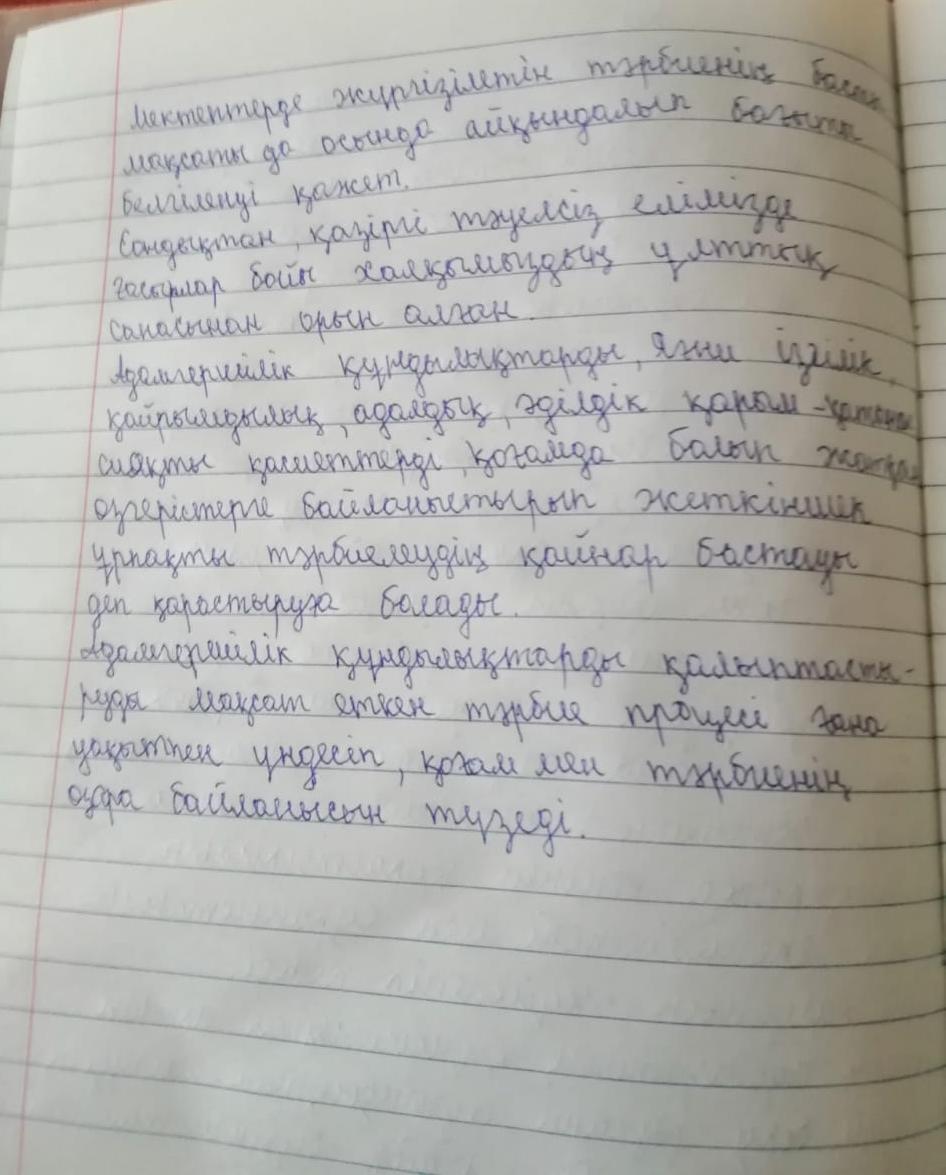 Мектептерде жүргізілетін тәрбиенің басты
мақсаты да осында айқындалып бағыты
белгіленуі қажет.
Сондықтан, қазіргі тәуелсіз елімізде
ғасырлар бойы халқымыздың ұлттық
санасынан орын алған.
Адамгершілік құндылықтарды, яғни ізгілік,
қайрымдылық, адалдық, әділдік қарым-қатынас
сияқты қасиеттерді, қоғамда болып жатқан
өзгерістерге байланыстырып жеткіншек
ұрпақты тәрбиелеудің қайнар бастауы
деп қарастыруға болады.
Адамгершілік құндылықтарды қалыптасты-
руды мақсат еткен тәрбие процесі ғана
уақытпен үндесіп, қоғам мен тәрбиенің
өзара байланысын түзеді.